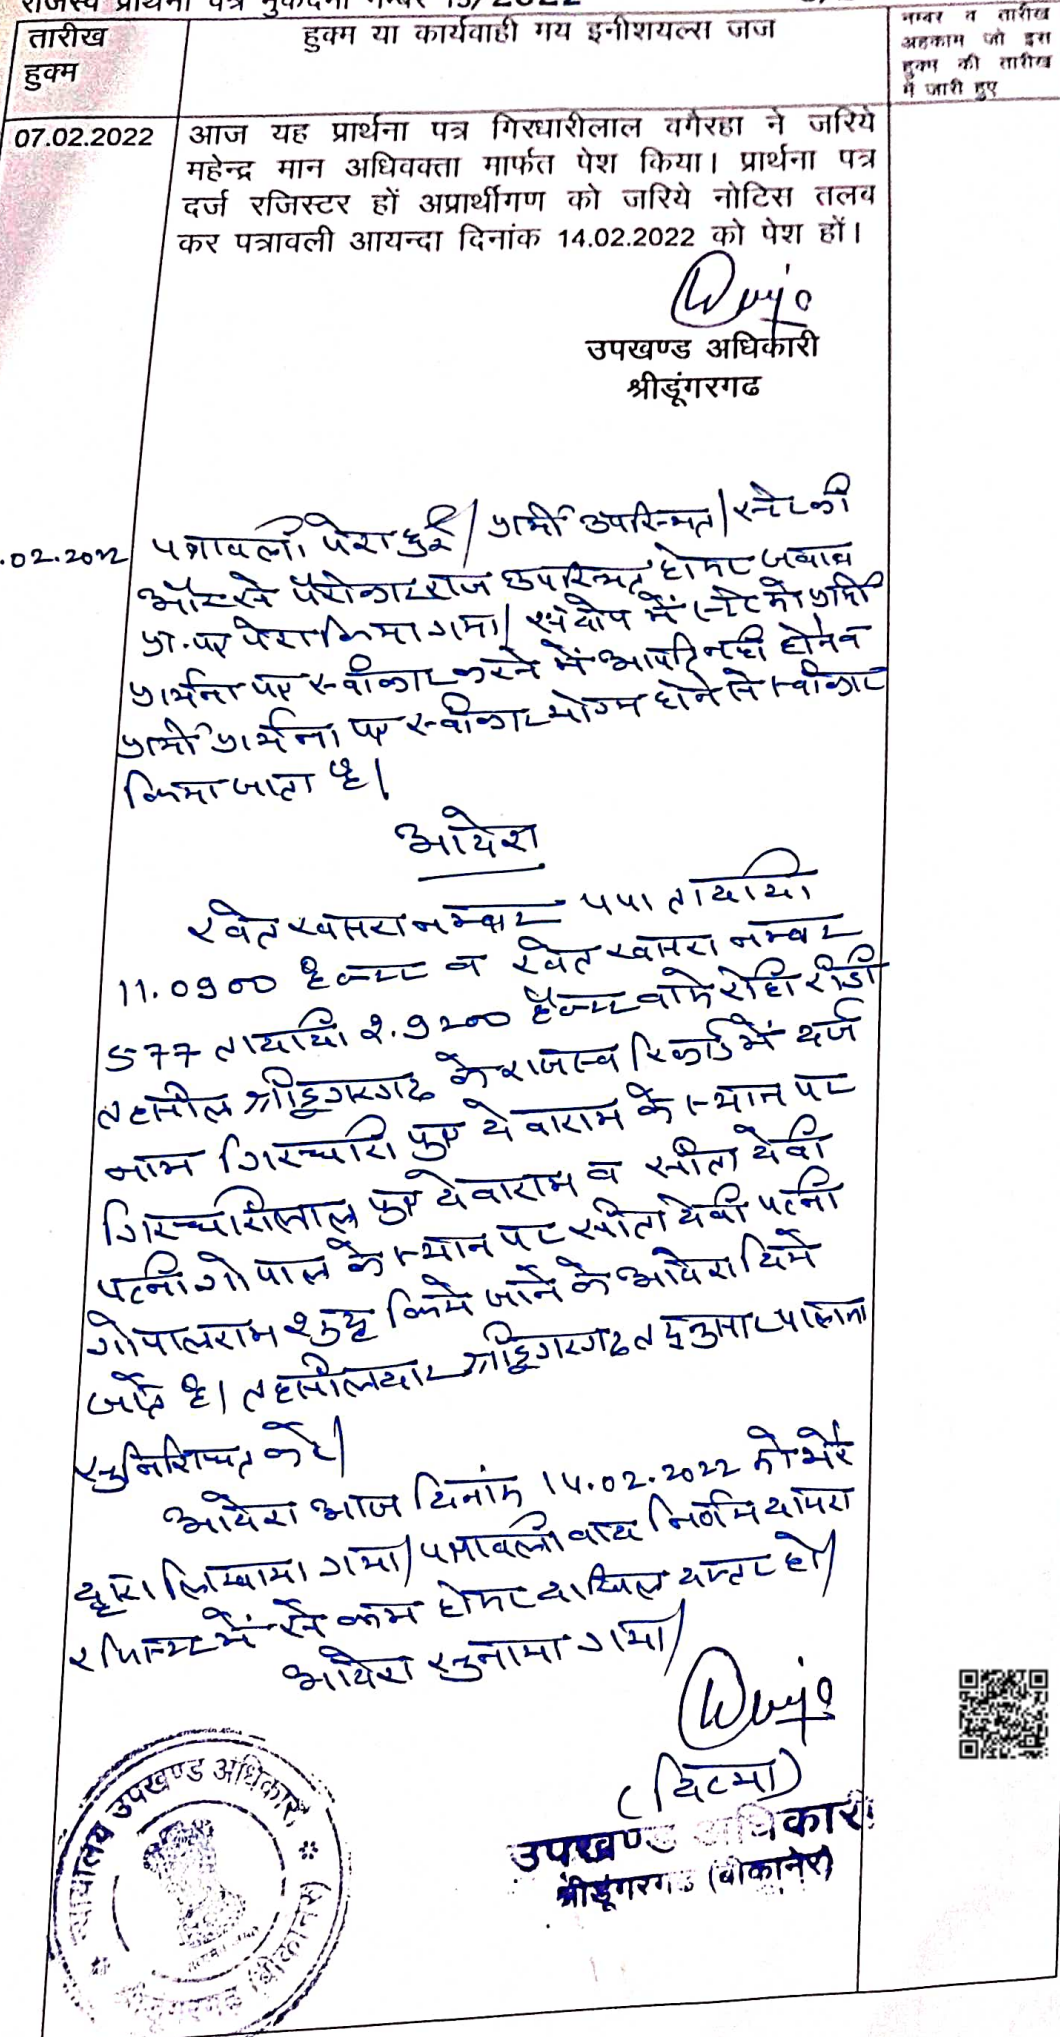 राजस्व प्रार्थना पत्र मुकदमा नम्बर 15/2022
तारीख हुक्म
हुक्म या कार्यवाही मय इनीशयल्स जज
नम्बर व तारीख
अहकाम जो इस
हुक्म की तारीख
में जारी हुए
07.02.2022
आज यह प्रार्थना पत्र गिरधारीलाल वगैरहा ने जरिये
महेन्द्र मान अधिवक्ता मार्फत पेश किया। प्रार्थना पत्र
दर्ज रजिस्टर हों अप्रार्थीगण को जरिये नोटिस तलब
कर पत्रावली आयन्दा दिनांक 14.02.2022 को पेश हों।
उपखण्ड अधिकारी
श्रीडूंगरगढ
.02.2022
पत्रावली पेश हुई। प्रार्थी उपस्थित। स्टेट की
और से पैरोकार राज उपस्थित होकर जवाब
प्रा. पत्र पेश किया गया। संक्षेप में स्टेट को प्रार्थी
प्रार्थना पत्र स्वीकार करने में आपत्ति नहीं होने व
प्रार्थी प्रार्थना पत्र स्वीकार योग्य होने से स्वीकार
किया जाता है।
आदेश
खेत खसरा नम्बर तादादी
11.0900 हैक्टर व खेत खसरा नम्बर
577 तादादी 2.9200 हैक्टर वाके रोही रीडी
तहसील श्रीडूंगरगढ के राजस्व रिकॉर्ड में दर्ज
नाम गिरधारी पुत्र देवाराम के स्थान पर
गिरधारीलाल पुत्र देवाराम व सीता देवी
पत्नी गोपाल के स्थान पर सीता देवी पत्नी
गोपालराम शुद्ध किये जाने के आदेश दिये
जाते है। तहसीलदार श्रीडूंगरगढ तद्नुसार पालना
सुनिश्चित करें।
आदेश आज दिनांक 14.02.2022 को मेरे
द्वारा लिखाया गया। पत्रावली बाद निर्णय दायरा
रजिस्टर में से कम होकर दाखिल दफ्तर हो।
आदेश सुनाया गया।
(दिव्या)
उपखण्ड अधिकारी
श्रीडूंगरगढ (बीकानेर)
न्यायालय उपखण्ड अधिकारी
श्रीडूंगरगढ (बीकानेर)